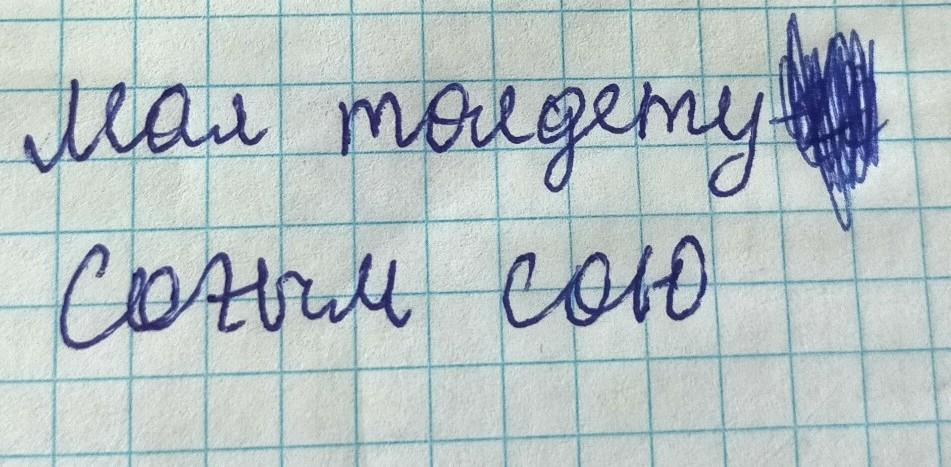 Мал төлдету
Соғым сою